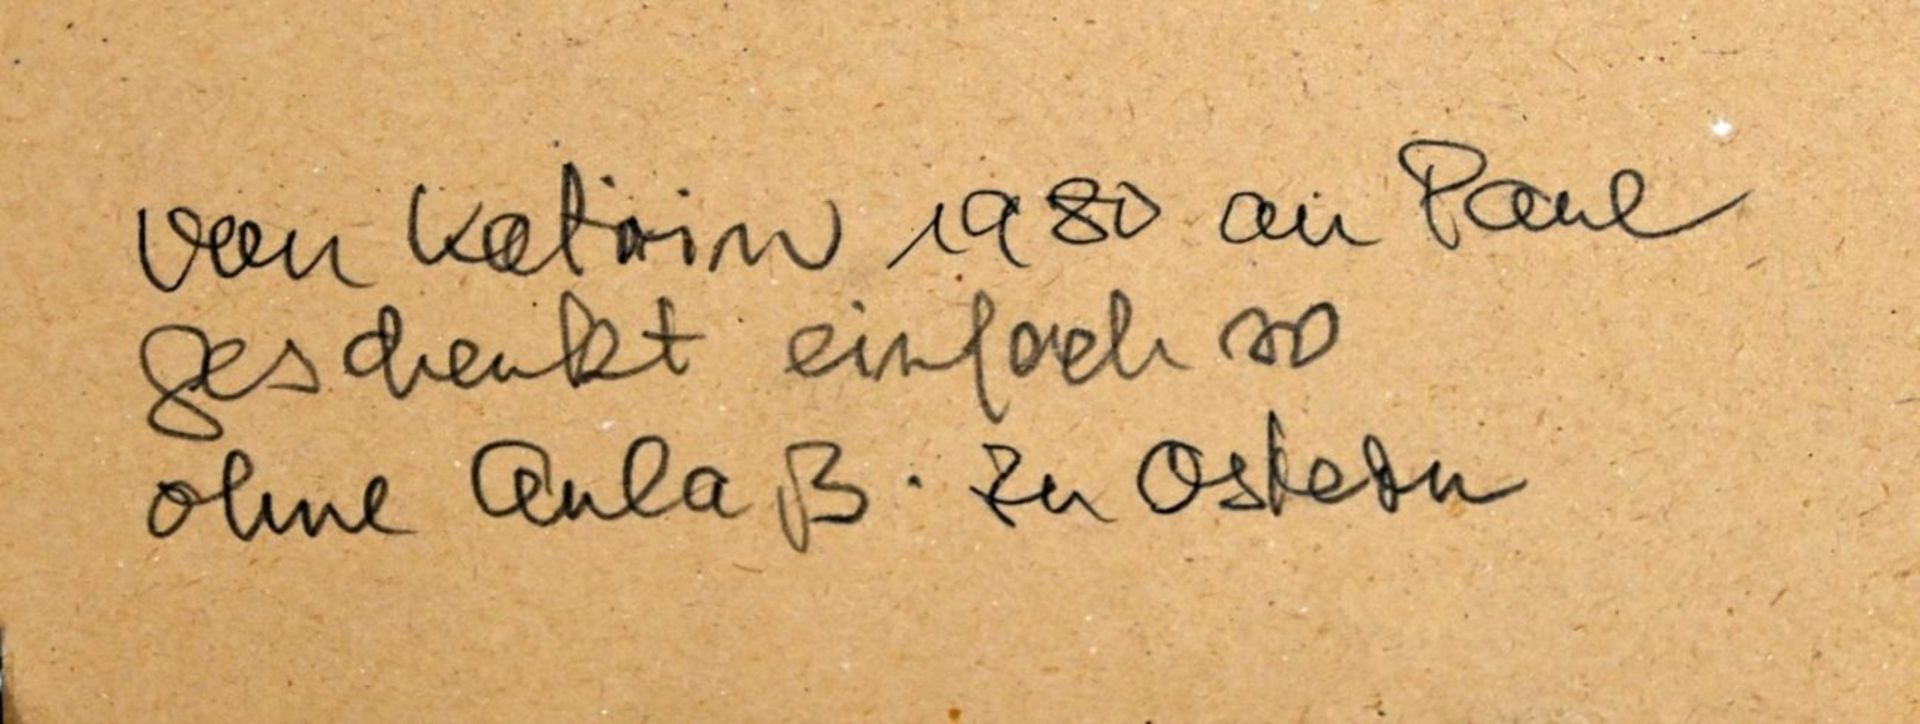 von Katrin 1980 an Paul
geschenkt einfach so
ohne Anlaß. Zu Ostern